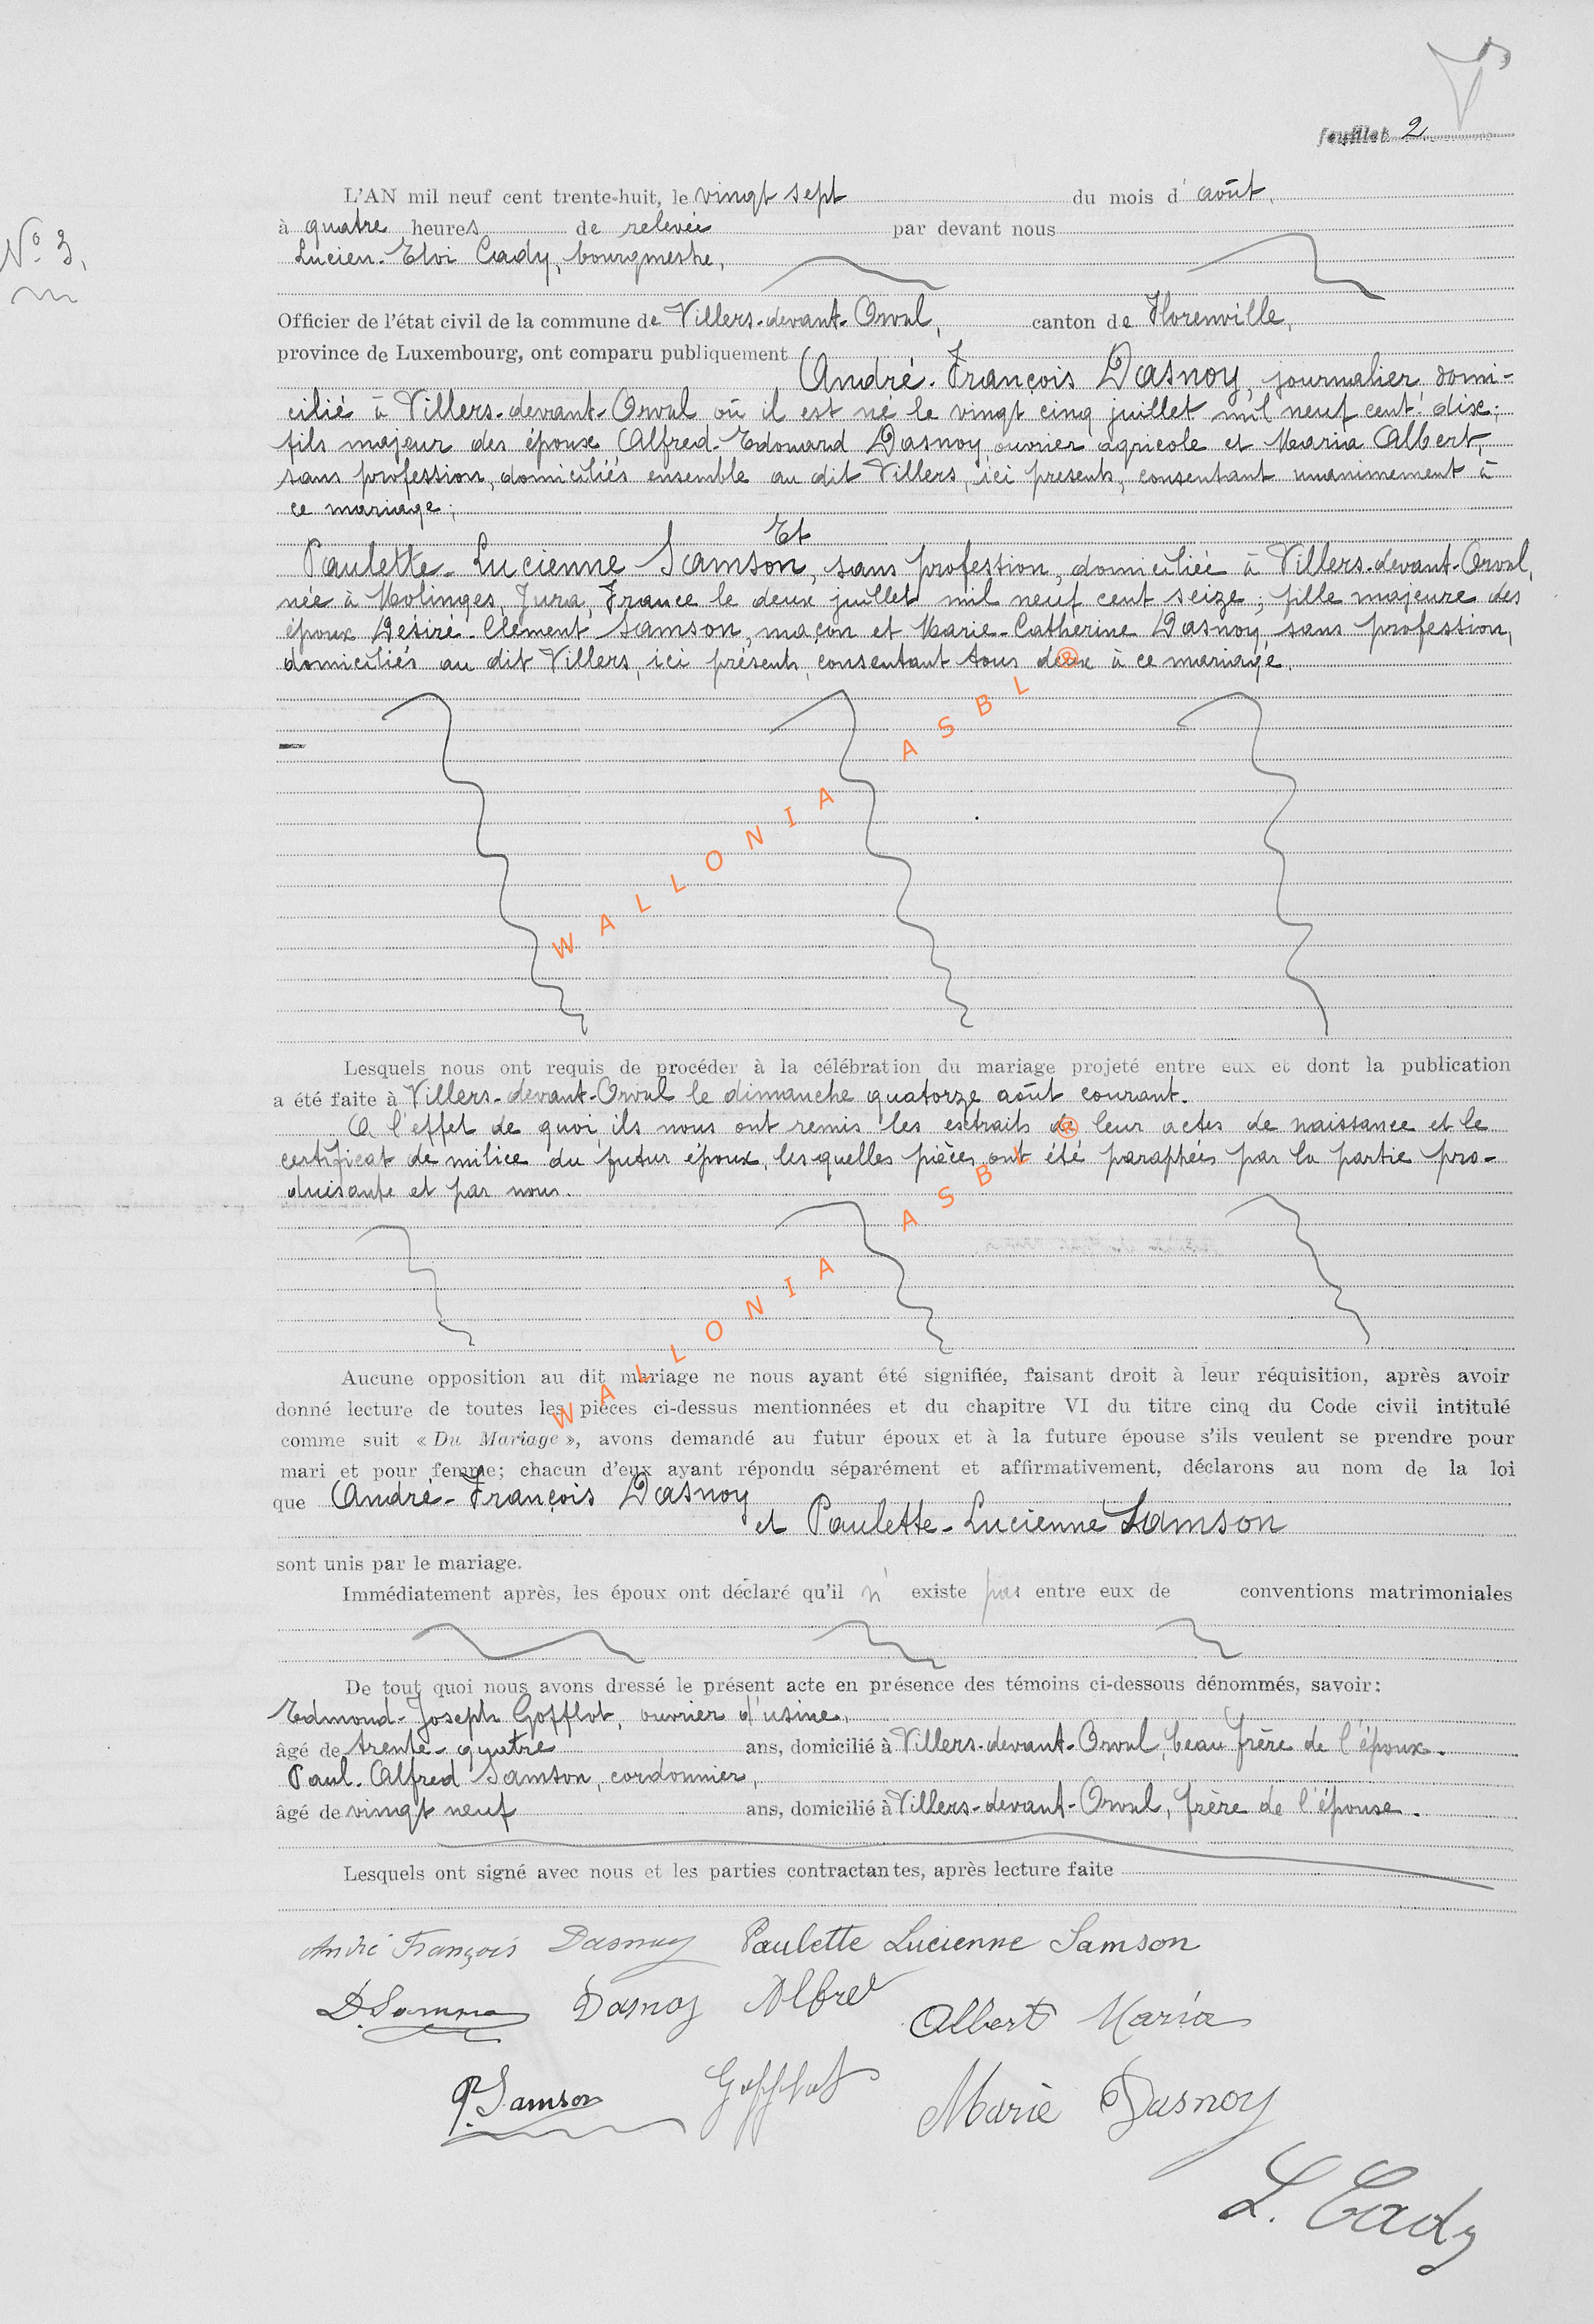 feuillet 2
N° 3.
L'AN mil neuf cent trente-huit, le vingt sept du mois d'août,
à quatre heures de relevée par devant nous
Lucien-Eloi Cady, bourgmestre,
Officier de l'état civil de la commune de Villers-devant-Orval, canton de Florenville,
province de Luxembourg, ont comparu publiquement
André-François Dasnoy, journalier, domi-
cilié à Villers-devant-Orval où il est né le vingt cinq juillet mil neuf cent dix;
fils majeur des époux Alfred-Edouard Dasnoy ouvrier agricole et Maria Albert,
sans profession, domiciliés ensemble au dit Villers, ici présents, consentant unanimement à
ce mariage;
Et
Paulette-Lucienne Samson, sans profession, domiciliée à Villers-devant-Orval,
née à Molinges, Jura, France le deux juillet mil neuf cent seize; fille majeure des
époux Désiré-Clément Samson, maçon et Marie-Catherine Dasnoy, sans profession,
domiciliés au dit Villers, ici présents, consentant tous deux à ce mariage.
WALLONIA ASBL ®
Lesquels nous ont requis de procéder à la célébration du mariage projeté entre eux et dont la publication
a été faite à Villers-devant-Orval le dimanche quatorze août courant.
A l'effet de quoi, ils nous ont remis les extraits de leur actes de naissance et le
certificat de milice du futur époux, lesquelles pièces ont été paraphées par la partie pro-
duisante et par nous.
WALLONIA ASBL ®
Aucune opposition au dit mariage ne nous ayant été signifiée, faisant droit à leur réquisition, après avoir
donné lecture de toutes les pièces ci-dessus mentionnées et du chapitre VI du titre cinq du Code civil intitulé
comme suit « Du Mariage », avons demandé au futur époux et à la future épouse s'ils veulent se prendre pour
mari et pour femme; chacun d'eux ayant répondu séparément et affirmativement, déclarons au nom de la loi
que André-François Dasnoy
et Paulette-Lucienne Samson
sont unis par le mariage.
Immédiatement après, les époux ont déclaré qu'il n'existe pas entre eux de conventions matrimoniales
De tout quoi nous avons dressé le présent acte en présence des témoins ci-dessous dénommés, savoir:
Edmond-Joseph Gofflot, ouvrier d'usine,
âgé de trente-quatre ans, domicilié à Villers-devant-Orval, beau frère de l'époux.
Paul-Alfred Samson, cordonnier,
âgé de vingt neuf ans, domicilié à Villers-devant-Orval, frère de l'épouse.
Lesquels ont signé avec nous et les parties contractantes, après lecture faite
André François Dasnoy Paulette Lucienne Samson
D. Samson Dasnoy Alfred Albert Maria
P. Samson Gofflot Marie Dasnoy
L. Cady